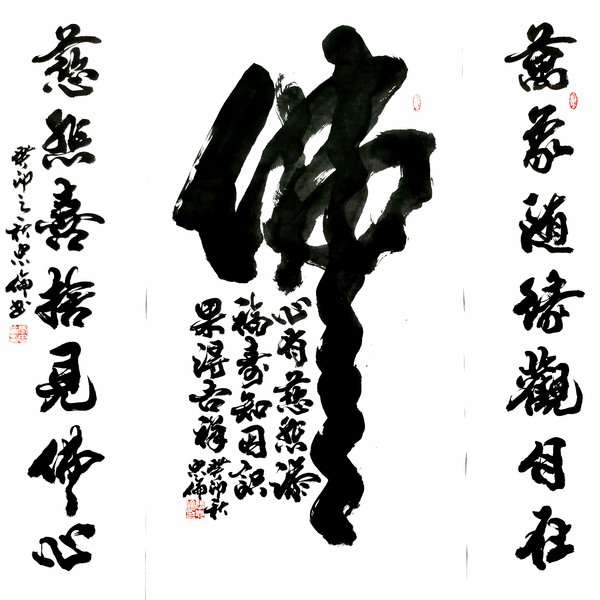 萬象随緣觀自在
佛
心有慈悲添
福壽知因識
果得吉祥
癸卯秋
忠倫
慈悲喜捨見佛心
癸卯之秋忠倫书